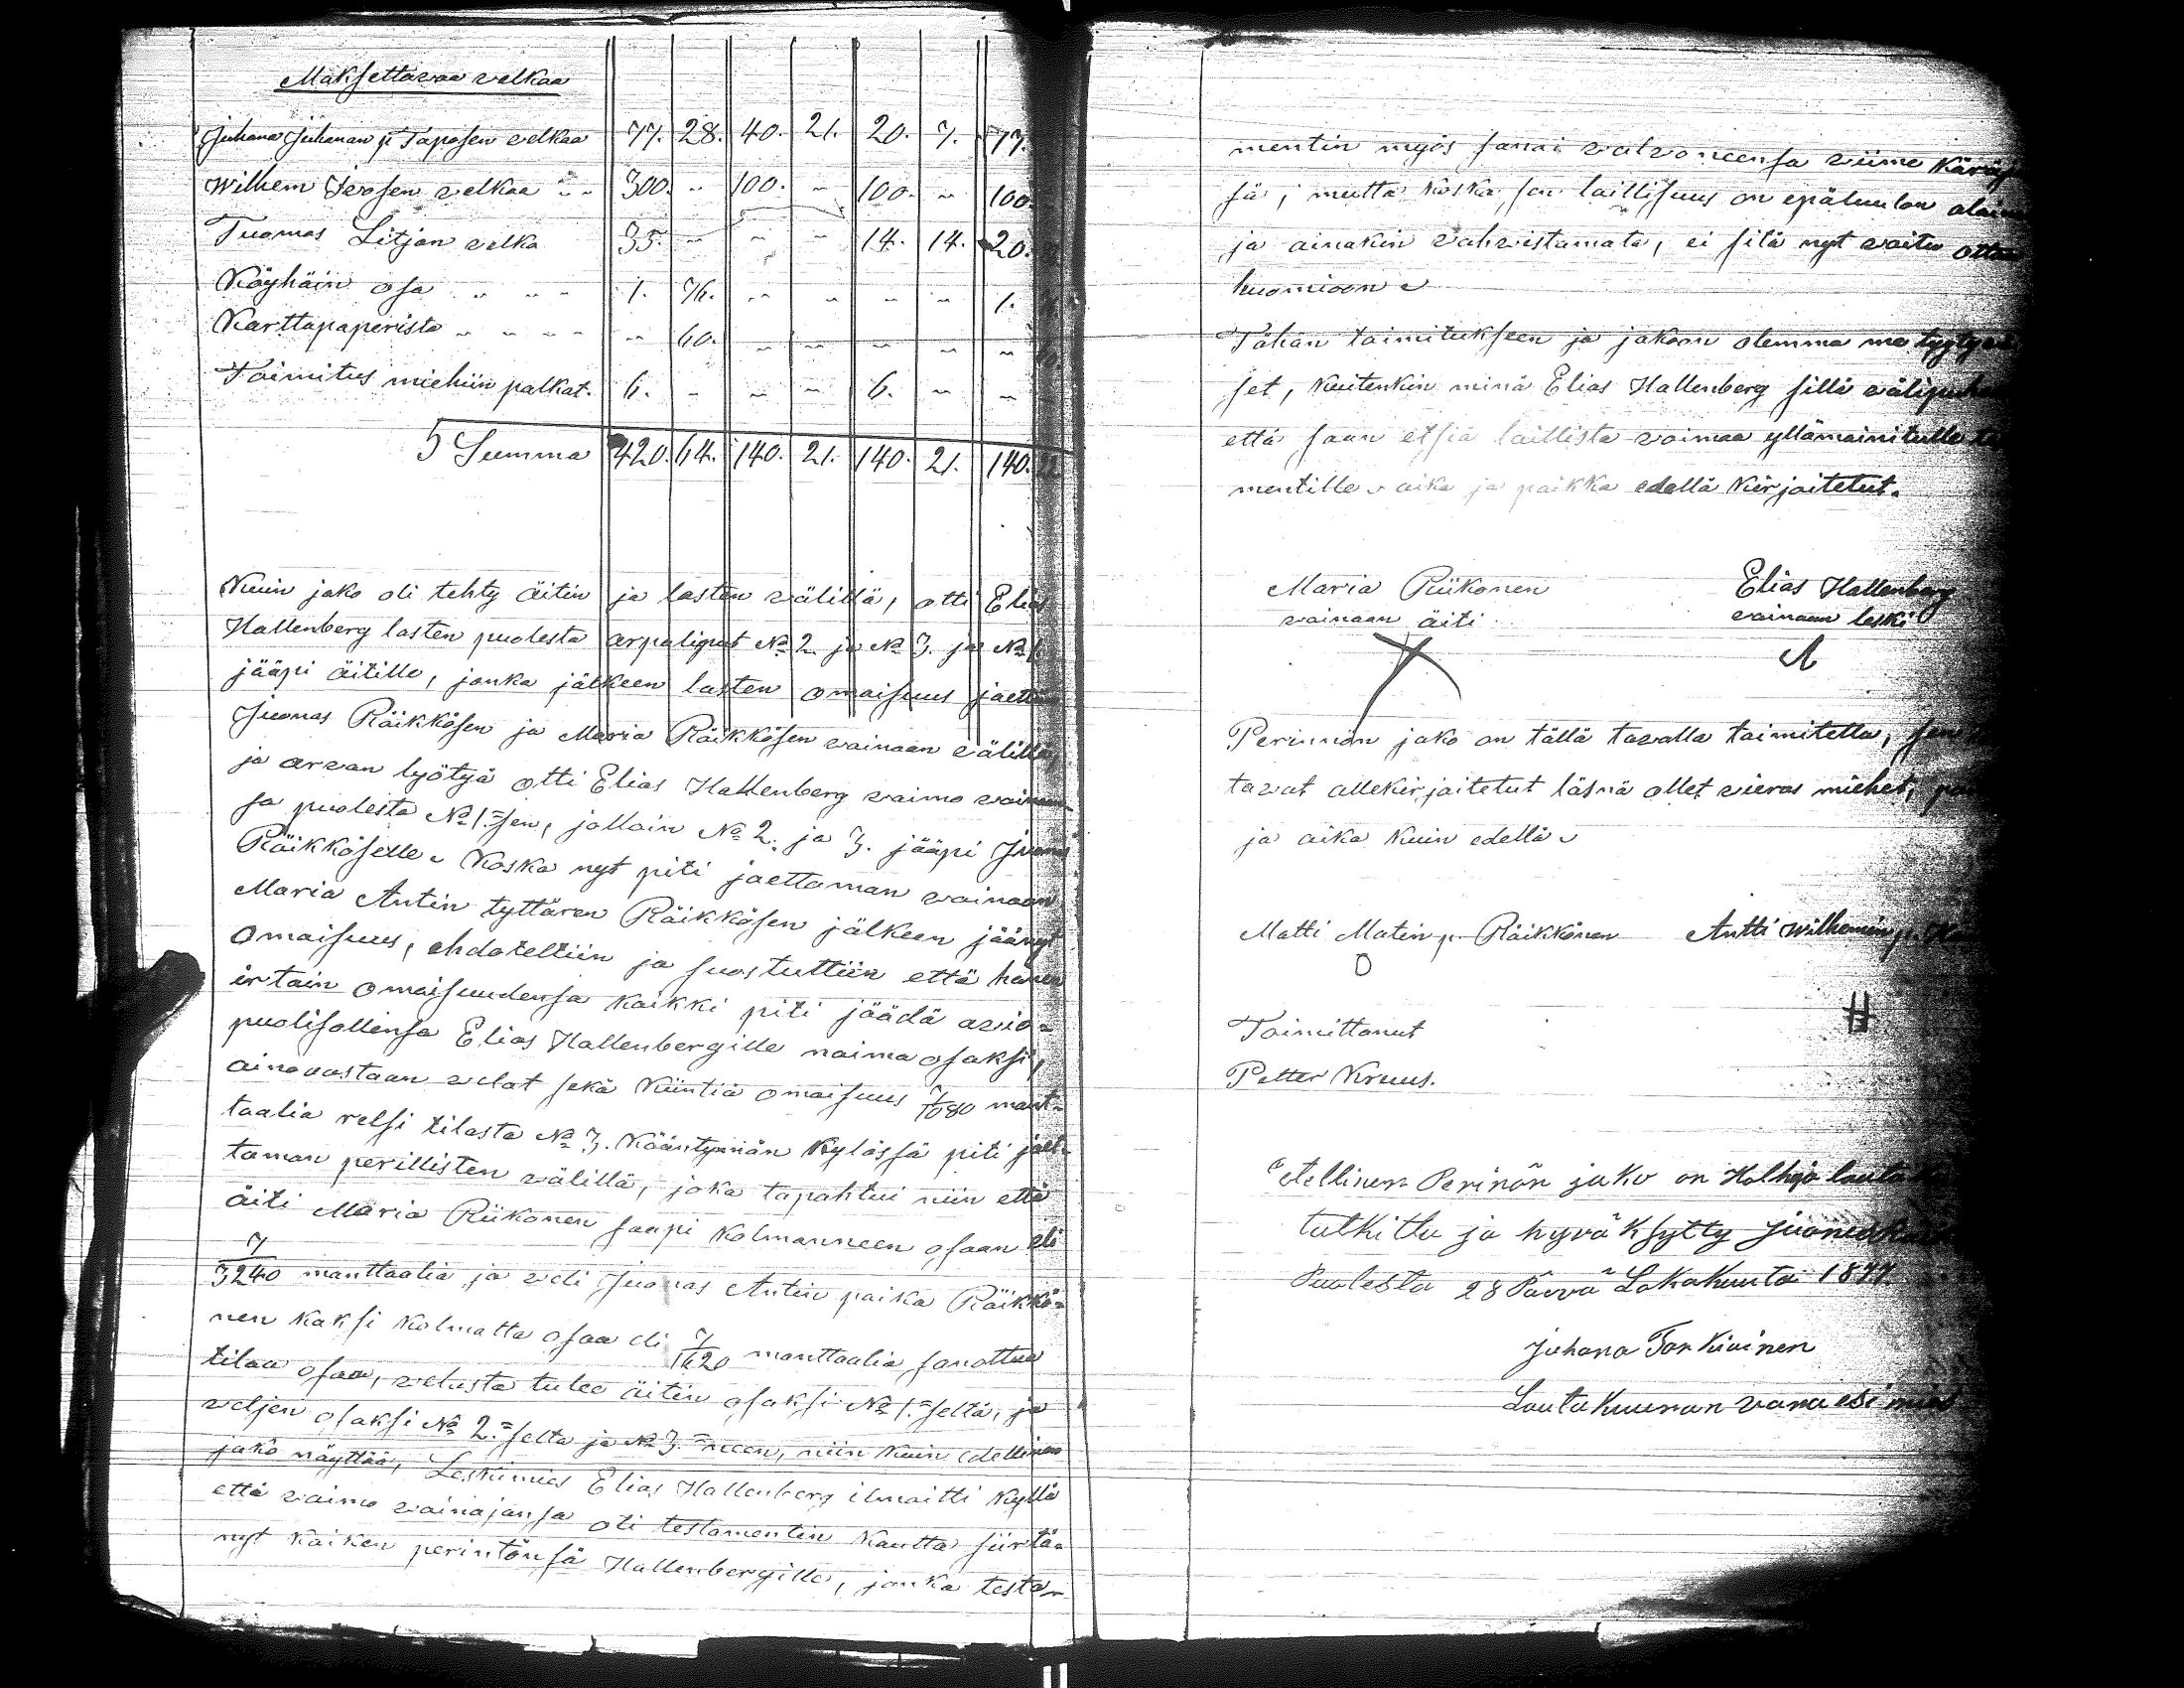 Maksettavaa velkaa
Juhana Juhanan p. Taposen velkaa 77. 28. 40. 21. 20. 7. 17.
Wilhem Ierosen velkaa 300. " 100. " 100. " 100.
Tuomas Litjan velka 35. " " " 14. 14. 20.
Köyhäin osa 1. 76. " " " " 1.
Karttapaperista " 60. " " " " "
Toimitus miehiin palkat. 6. " " " 6. " "
Summa 420. 64. 140. 21. 140. 21. 140.
Kuin jako oli tehty äitin ja lasten välillä, otti Elias
Hallenberg lasten puolesta arpaliput No 2. ja No 3. ja No 1.
jääpi äitille, jonka jälkeen lasten omaisuus jaettiin
Juonas Räikkösen ja Maria Räikkösen vainaan välillä,
ja arvan lyötyä otti Elias Hallenberg vaimo vainaan-
sa puolesta No 1.=sen, jolloin No 2. ja 3. jääpi Juonas
Räikköselle. Koska nyt piti jaettaman vainaan
Maria Antin tyttären Räikkösen jälkeen jäänyt
omaisuus, ehdoteltiin ja suostuttiin että hänen
irtain omaisuudensa kaikki piti jäädä avio=
puolisollensa Elias Hallenbergille naima osaksi,
ainoaastaan velat sekä kiintiä omaisuus 7/1080 mant=
taalia relsi tilasta No 3. Kääntymän kylässä piti jaet=
taman perillisten välillä, joka tapahtui niin että
äiti Maria Riikonen saapi kolmanneen osaan eli
7/3240 manttaalia ja veli Juonas Antin paika Räikkö=
nen kaksi kolmatta osaa eli 7/1620 manttaalia sanottua
tilaa osaa, velasta tulee äitin osaksi No 1.=seltä, ja
veljen osaksi No 2.=selta ja No 3.=neen, niin kuin edellinen
jako näyttää, Leskimies Elias Hallenberg ilmaitti kyllä
että vaimo vainajansa oli testamentin kautta siirtä=
nyt kaiken perintönsä Hallenbergille, jonka testa=
mentin myös sanoi valvoneensa viime Käräjä
sä; mutta koska sen laillisuus on epäluulon alainen
ja ainakin vahvistamata, ei sitä nyt voitu ottaa
huomioon.
Tähän toimitukseen ja jakoon olemma me tyytyväi
set, kuitenkin minä Elias Hallenberg sillä välipuheen
että saan etsiä laillista voimaa yllämainitulle tes
mentille. aika ja paikka edellä kirjoitetut.
Maria Riikonen Elias Hallenberg
vainaan äiti vainaan leski
Perinnön jako on tällä tavalla toimitettu, sen
tavat allekirjoitetut läsnä ollet vieras miehet,
ja aika kuin edellä.
Matti Matin p. Räikkönen Antti Wilhemin p.
Toimittanut
Petter Kruus.
Etellinen Perinön jako on Holhoja lauta
tutkittu ja hyväksytty Juonas
Puolesta 28 Päivä Lokakuuta 1877
Juhana Tonkiainen
Lautakunnan vara esi mies